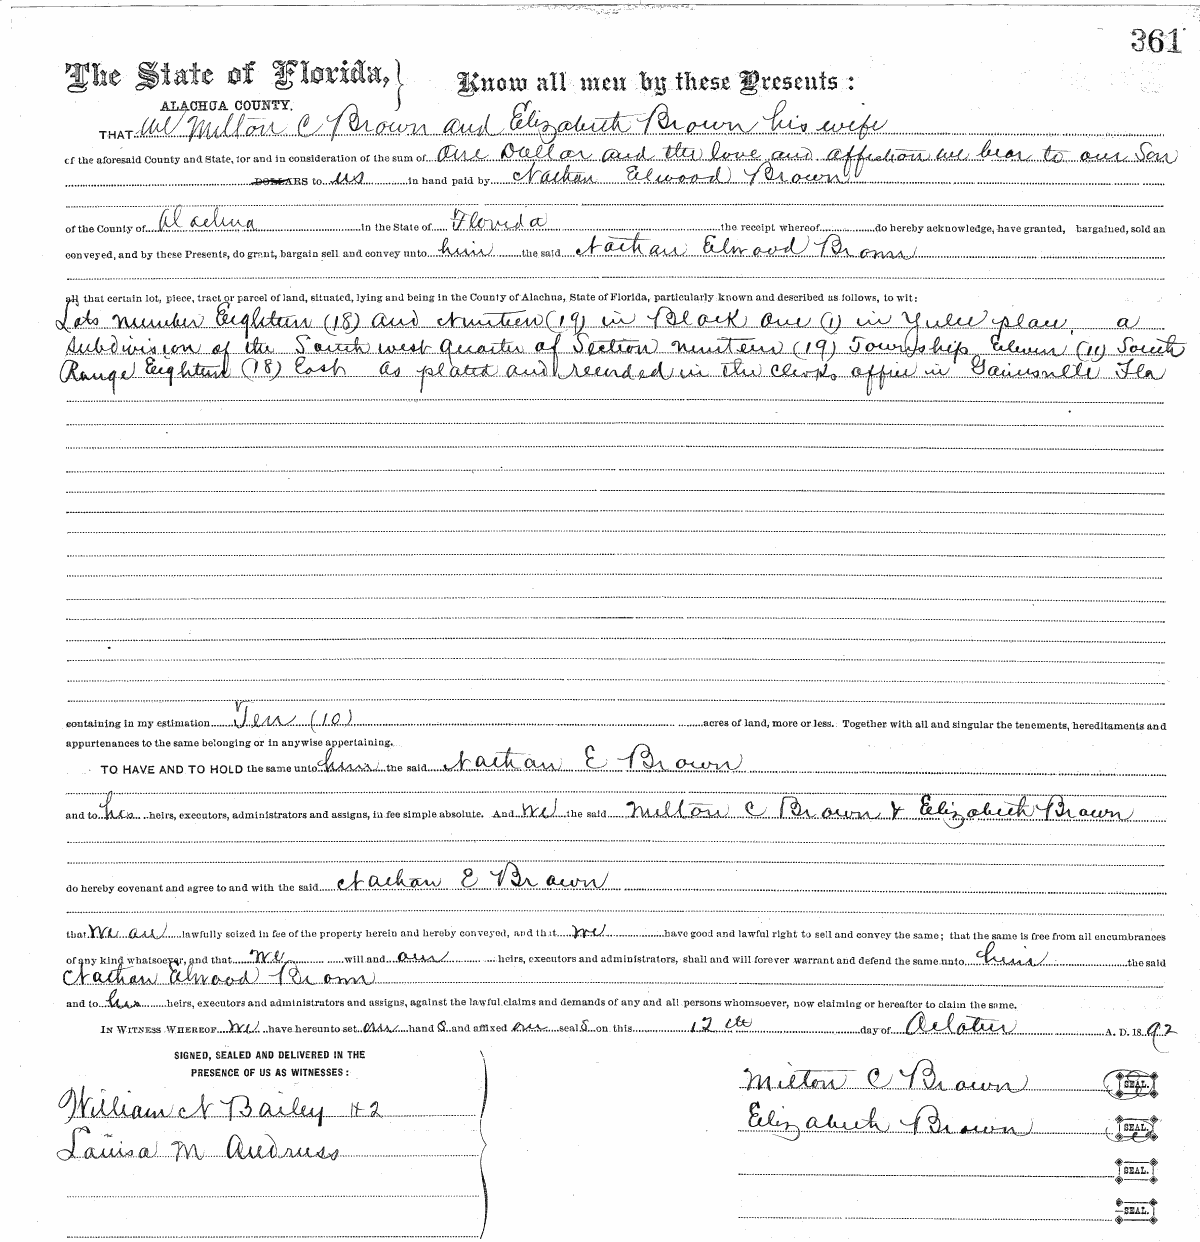 361
The State of Florida, } Know all men by these Presents :
ALACHUA COUNTY.
THAT We Milton C Brown and Elizabeth Brown his wife
of the aforesaid County and State, for and in consideration of the sum of One Dollar and the love and affection we bear to our Son
DOLLARS to us in hand paid by Nathan Elwood Brown
of the County of Alachua in the State of Florida the receipt whereof do hereby acknowledge, have granted, bargained, sold an
conveyed, and by these Presents, do grant, bargain sell and convey unto him the said Nathan Elwood Brown
all that certain lot, piece, tract or parcel of land, situated, lying and being in the County of Alachua, State of Florida, particularly known and described as follows, to wit:
Lots number Eighteen (18) and Nineteen (19) in Block one (1) in Yulee place, a
subdivision of the South west quarter of Section nineteen (19) Township Eleven (11) South
Range Eighteen (18) East as plated and recorded in the clerks office in Gainesville Fla
containing in my estimation Ten (10) acres of land, more or less. Together with all and singular the tenements, hereditaments and
appurtenances to the same belonging or in anywise appertaining.
TO HAVE AND TO HOLD the same unto him the said Nathan E Brown
and to his heirs, executors, administrators and assigns, in fee simple absolute. And we the said Milton C Brown & Elizabeth Brown
do hereby covenant and agree to and with the said Nathan E Brown
that we are lawfully seized in fee of the property herein and hereby conveyed, and that we have good and lawful right to sell and convey the same; that the same is free from all encumbrances
of any kind whatsoever, and that we will and our heirs, executors and administrators, shall and will forever warrant and defend the same unto him the said
Nathan Elwood Brown
and to his heirs, executors and administrators and assigns, against the lawful claims and demands of any and all persons whomsoever, now claiming or hereafter to claim the same.
IN WITNESS WHEREOF we have hereunto set our hand s and affixed our seal s on this 12th day of October A. D. 18 92
SIGNED, SEALED AND DELIVERED IN THE
PRESENCE OF US AS WITNESSES :
Milton C Brown SEAL.
William N Bailey
Elizabeth Brown SEAL.
Louisa M Andruss
SEAL.
SEAL.